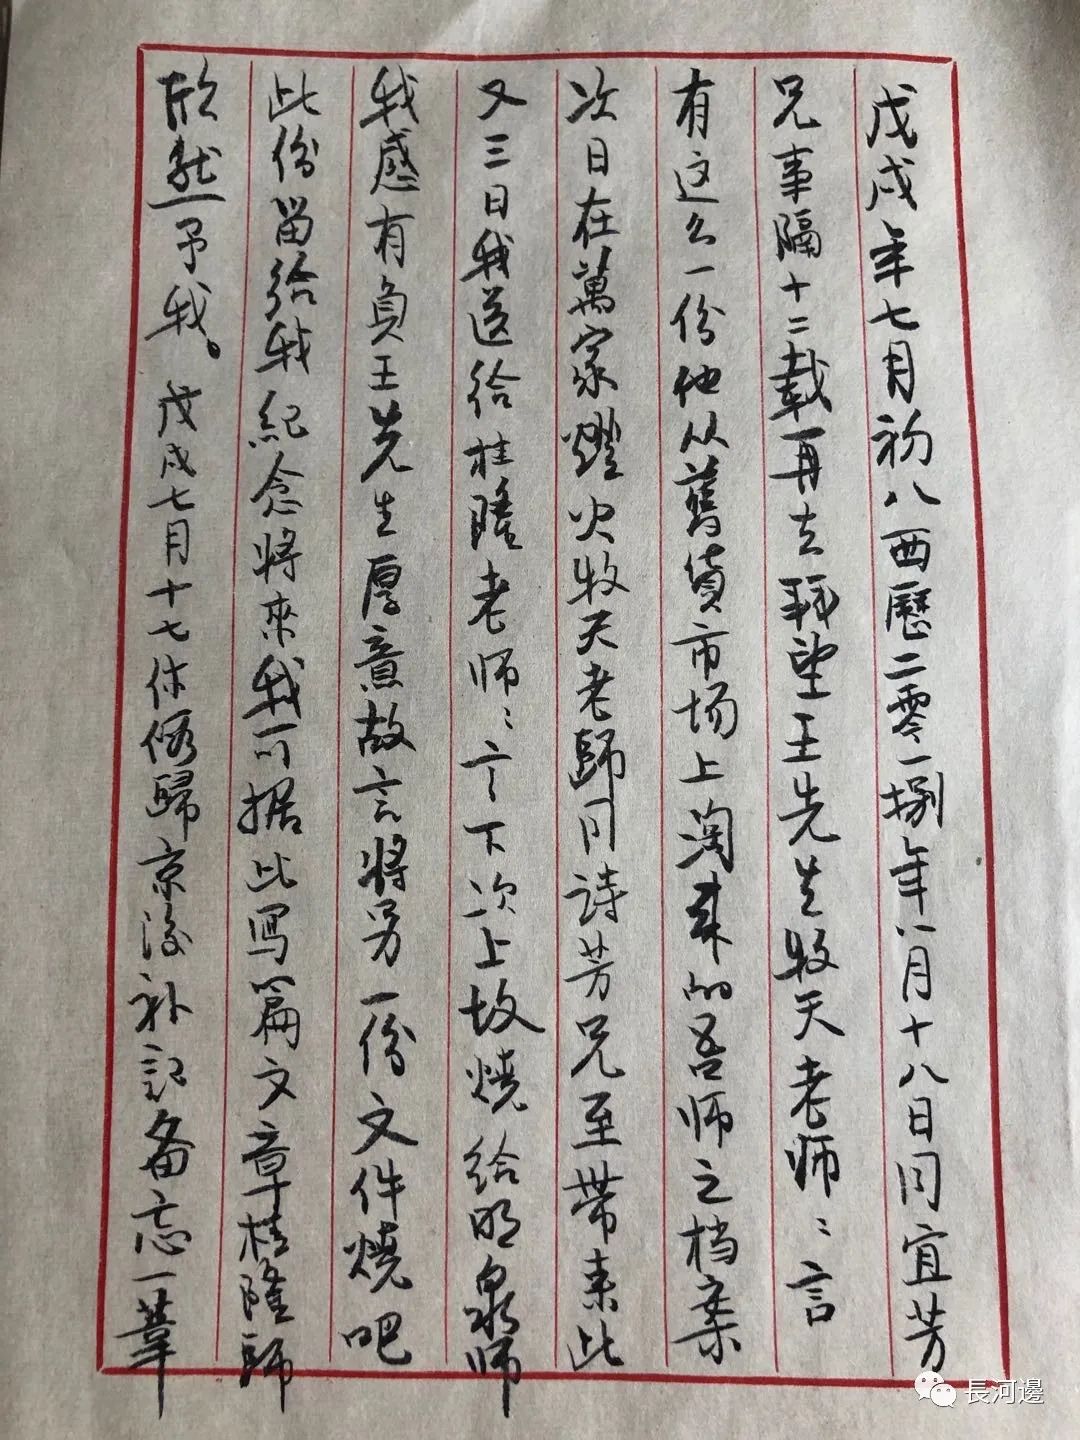 戊戌年七月初八西歷二零一捌年八月十八日同宜芳
兄事隔十二载再去拜望王先生牧天老师〻言
有这么一份他从舊货市场上淘来的吾师之档案
次日在萬家燈火牧天老歸同詩芳兄至带来此
又三日我送给桂隆老师〻言下次上坟燒给明泉师
我感有負王先生厚意故言将另一份文件燒吧
此份留给我紀念将來我可据此写篇文章桂隆師
欣然予我。戊戌七月十七休假歸京後补記备忘一葦
長河邊